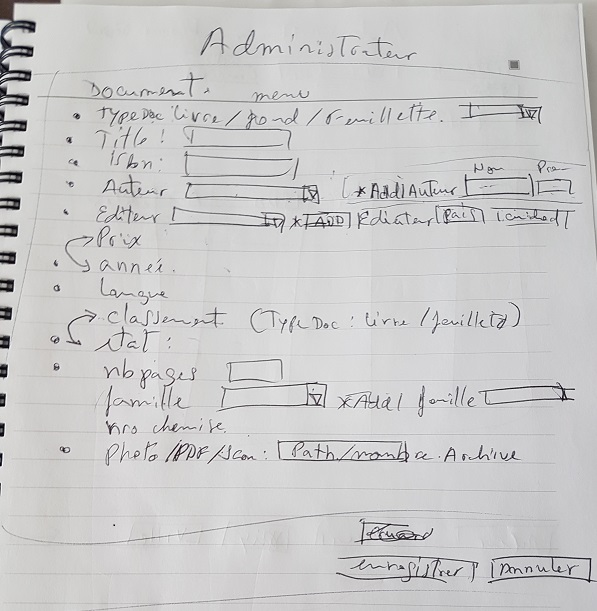 Administrateur
Document. menu
TypeDoc: livre / fond / feuillette.
Title:
isbn:
Nom Pre
Auteur * Add | Auteur
Editeur * ADD Editeur Pais
Prix
année.
Langue
classement (TypeDoc: livre / feuillets)
état:
nb pages
famille * Add / famille
nro chemise.
Photo / PDF / scan: Path/nombre. Archive
enregistrer Annuler